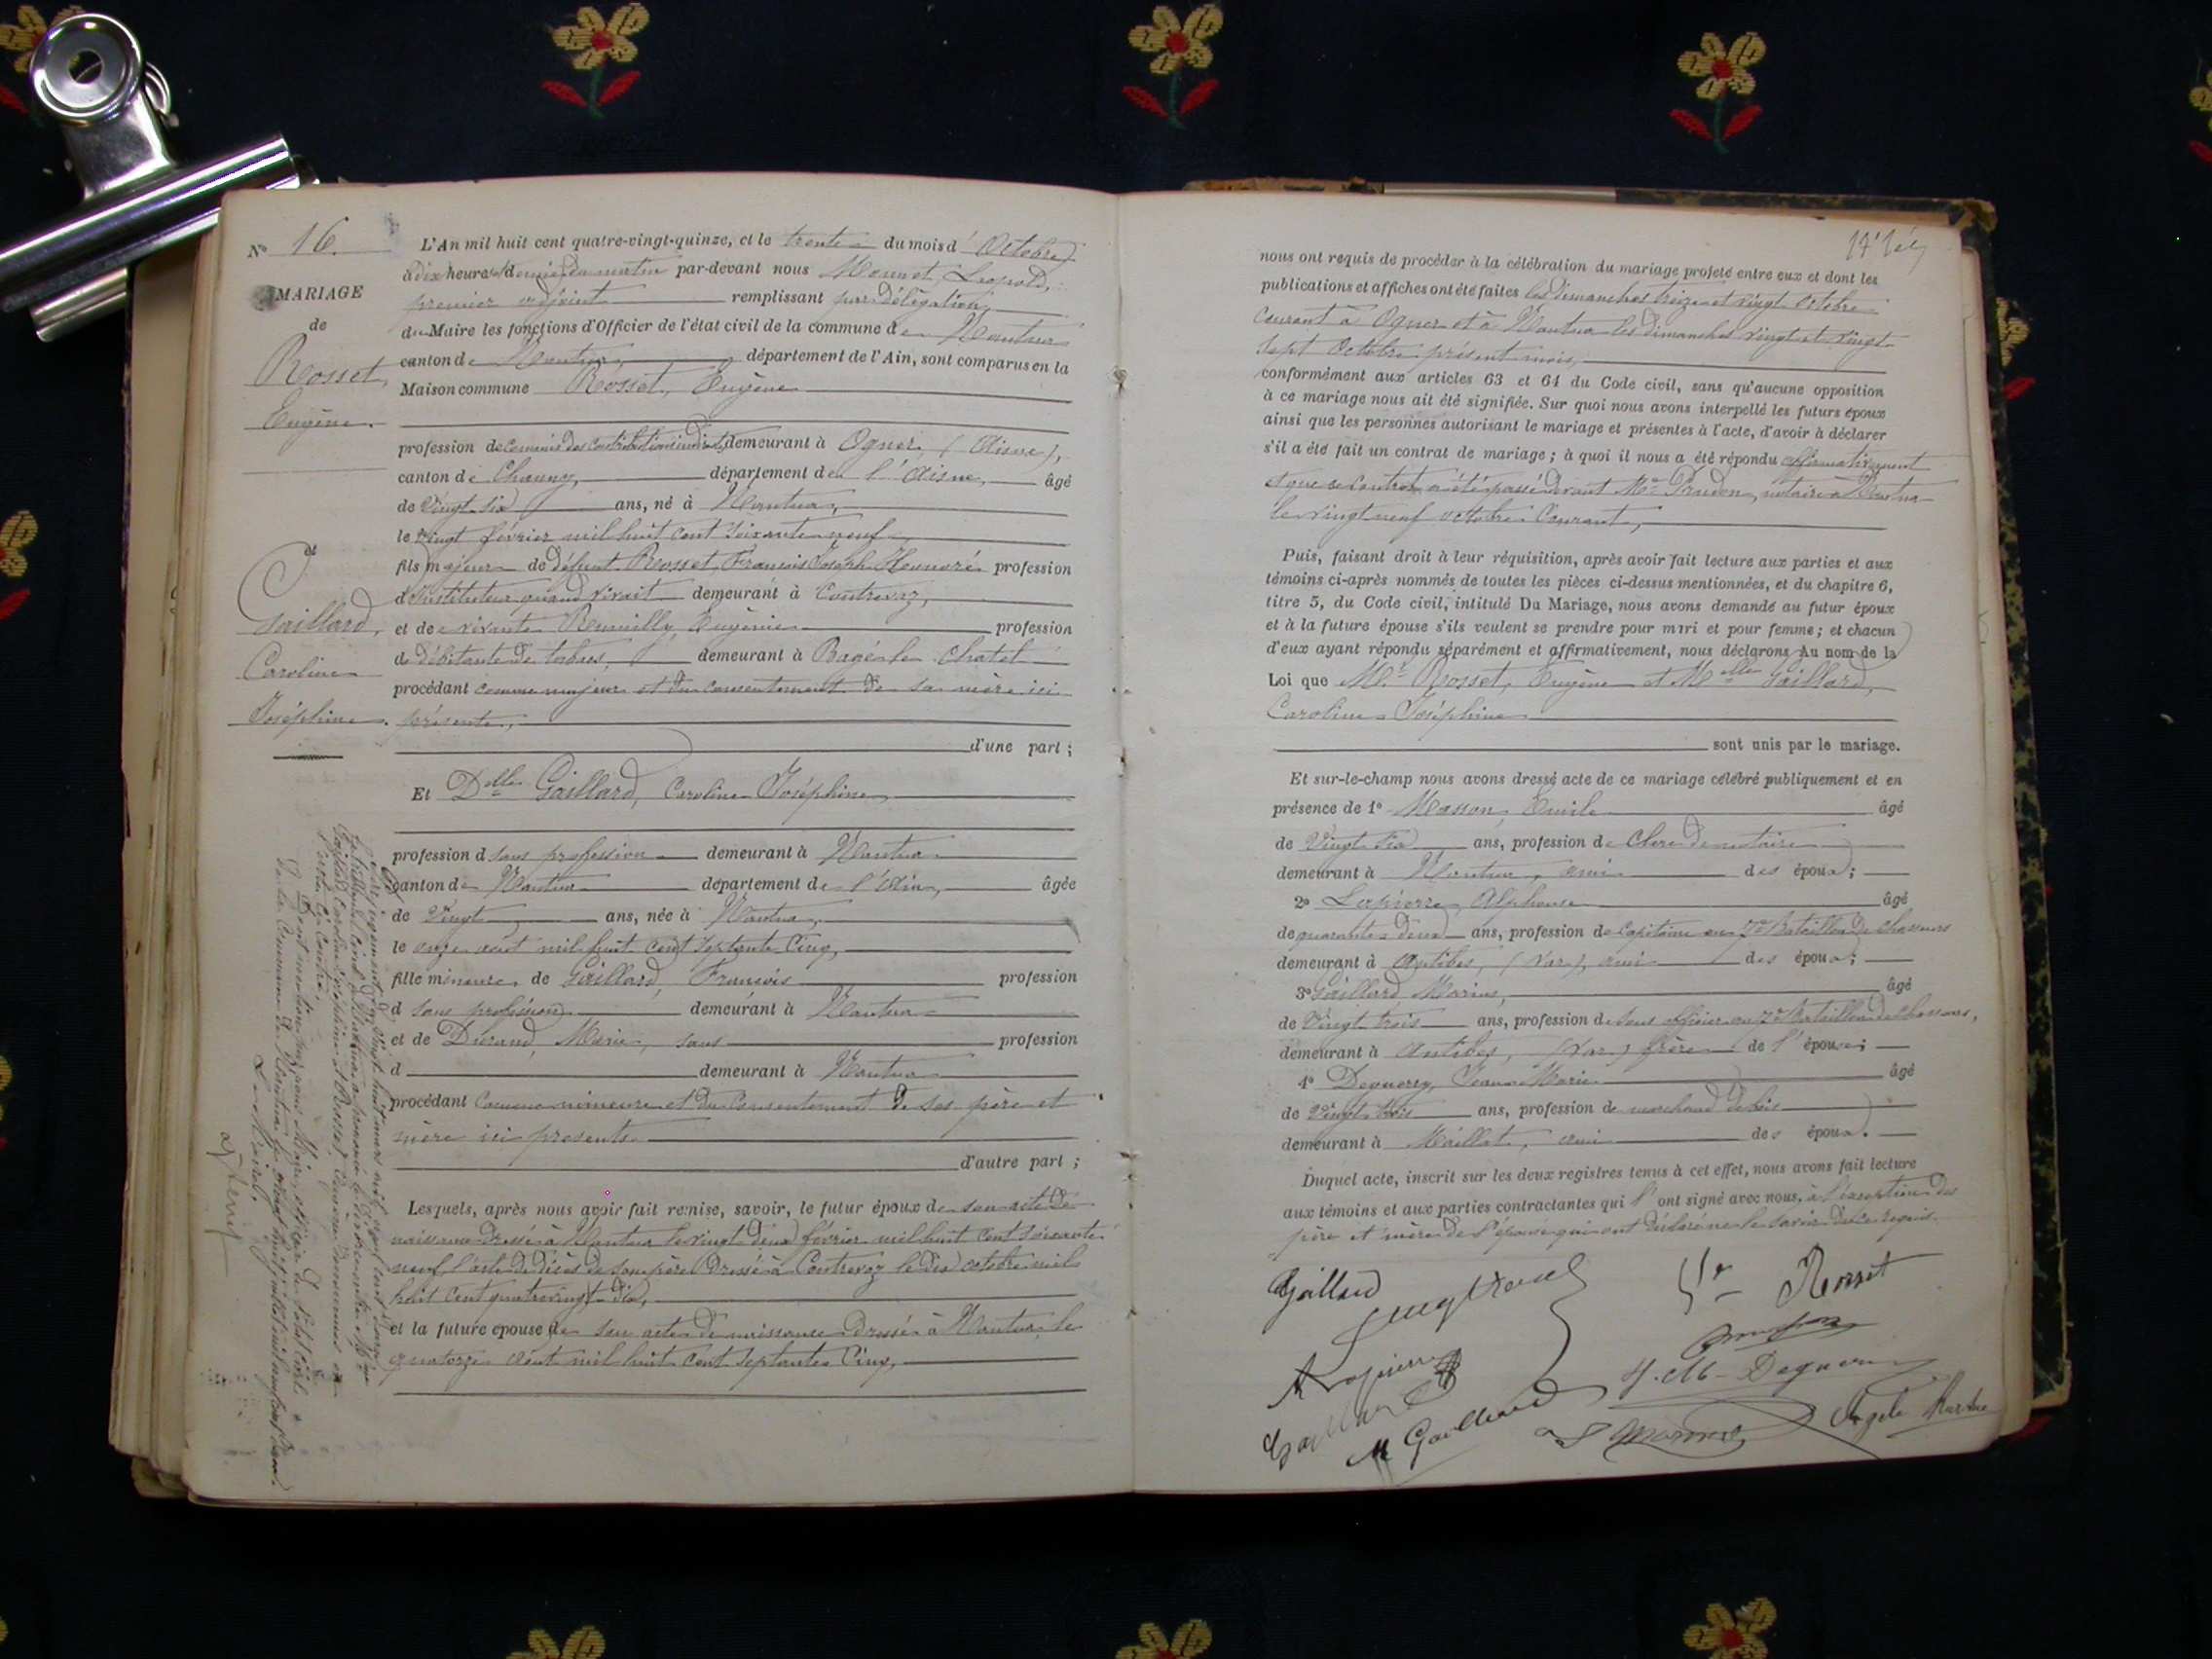 N° 16.
MARIAGE
de
Rosset,
Eugène.
et
Gaillard,
Caroline
Joséphine.
L'An mil huit cent quatre-vingt-quinze, et le trente du mois d'Octobre
à dix heures & demie du matin par-devant nous Monnet, Léopold,
premier adjoint remplissant par délégation
du Maire les fonctions d'Officier de l'état civil de la commune de Nantua
canton de Nantua, département de l'Ain, sont comparus en la
Maison commune Rosset, Eugène
profession de Commis des Contributions indirectes, demeurant à Ognes, (Aisne),
canton de Chauny, département de l'Aisne, âgé
de Vingt-six ans, né à Nantua,
le vingt février mil huit cent soixante neuf,
fils majeur de défunt Rosset, François Joseph Honoré profession
d'instituteur quand vivait demeurant à Contrevoz,
et de vivante Rumilly Eugénie profession
de débitante de tabacs, demeurant à Bagé-le-Chatel
procédant comme majeur et du consentement de sa mère ici
présente,
d'une part ;
Et Delle Gaillard, Caroline Joséphine
profession d sans profession demeurant à Nantua
canton de Nantua département de l'Ain, âgée
de Vingt ans, née à Nantua,
le onze août mil huit cent septante cinq,
fille mineure de Gaillard, François profession
d sans profession demeurant à Nantua
et de Durand, Marie, sans profession
d demeurant à Nantua
procédant comme mineure et du consentement de ses père et
mère ici présents
d'autre part ;
Lesquels, après nous avoir fait remise, savoir, le futur époux de son acte de
naissance dressé à Nantua le vingt deux février mil huit cent soixante
neuf, l'acte de décès de son père dressé à Contrevoz le dix octobre mil
huit cent quatre vingt-dix,
et la future épouse de son acte de naissance dressé à Nantua le
quatorze août mil huit cent septante cinq,
Par jugement du vingt huit mars mil neuf cent
le tribunal civil de Nantua a prononcé le divorce entre Mme
Gaillard Caroline Joséphine et Rosset, Eugène
l'acte ci-contre.
Dont mention par nous Maire, officier de l'état civil
de la Commune de Nantua
Le Maire,
nous ont requis de procéder à la célébration du mariage projeté entre eux et dont les
publications et affiches ont été faites les dimanches treize et vingt octobre
courant à Ognes et à Nantua les dimanches vingt et vingt
sept Octobre présent mois,
conformément aux articles 63 et 64 du Code civil, sans qu'aucune opposition
à ce mariage nous ait été signifiée. Sur quoi nous avons interpellé les futurs époux
ainsi que les personnes autorisant le mariage et présentes à l'acte, d'avoir à déclarer
s'il a été fait un contrat de mariage ; à quoi il nous a été répondu affirmativement
et que ce contrat a été passé devant Me Prudon, notaire à Nantua
le vingt neuf octobre courant,
Puis, faisant droit à leur réquisition, après avoir fait lecture aux parties et aux
témoins ci-après nommés de toutes les pièces ci-dessus mentionnées, et du chapitre 6,
titre 5, du Code civil, intitulé Du Mariage, nous avons demandé au futur époux
et à la future épouse s'ils veulent se prendre pour mari et pour femme ; et chacun
d'eux ayant répondu séparément et affirmativement, nous déclarons Au nom de la
Loi que Mr Rosset, Eugène et Melle Gaillard,
Caroline Joséphine
sont unis par le mariage.
Et sur-le-champ nous avons dressé acte de ce mariage célébré publiquement et en
présence de 1° Masson, Emile âgé
de Vingt six ans, profession de Clerc de notaire
demeurant à Nantua, ami des époux ;
2° Lapierre, Alphonse âgé
de quarante-deux ans, profession de Capitaine au 7e Bataillon de Chasseurs
demeurant à Antibes, (Var), ami des époux ;
3° Gaillard, Marius, âgé
de Vingt trois ans, profession de sous officier au 7e Bataillon de Chasseurs,
demeurant à Antibes, (Var) frère de l'épouse ;
4° Deguerry, Jean-Marie âgé
de Vingt-trois ans, profession de marchand de bois
demeurant à Maillat, ami des époux.
Duquel acte, inscrit sur les deux registres tenus à cet effet, nous avons fait lecture
aux témoins et aux parties contractantes qui l'ont signé avec nous, à l'exception des
père et mère de l'épouse qui ont déclaré ne le savoir de ce requis.
Gaillard
Eug Rosset
Vve Rosset
A Lapierre
J. M. Deguerry
M Gaillard
Angele